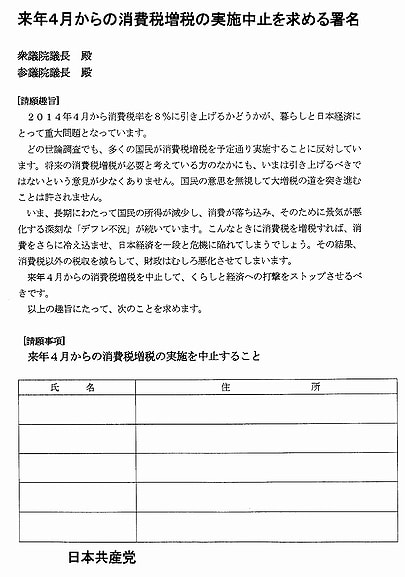 来年4月からの消費税増税の実施中止を求める署名
衆議院議長 殿
参議院議長 殿
[請願趣旨]
２０１４年４月から消費税率を８％に引き上げるかどうかが、暮らしと日本経済に
とって重大問題となっています。
どの世論調査でも、多くの国民が消費税増税を予定通り実施することに反対してい
ます。将来の消費税増税が必要と考えている方のなかにも、いまは引き上げるべきで
はないという意見が少なくありません。国民の意思を無視して大増税の道を突き進む
ことは許されません。
いま、長期にわたって国民の所得が減少し、消費が落ち込み、そのために景気が悪
化する深刻な「デフレ不況」が続いています。こんなときに消費税を増税すれば、消
費をさらに冷え込ませ、日本経済を一段と危機に陥れてしまうでしょう。その結果、
消費税以外の税収を減らして、財政はむしろ悪化させてしまいます。
来年４月からの消費税増税を中止して、くらしと経済への打撃をストップさせるべ
きです。
以上の趣旨にたって、次のことを求めます。
[請願事項]
来年４月からの消費税増税の実施を中止すること
氏 名 住 所
日本共産党